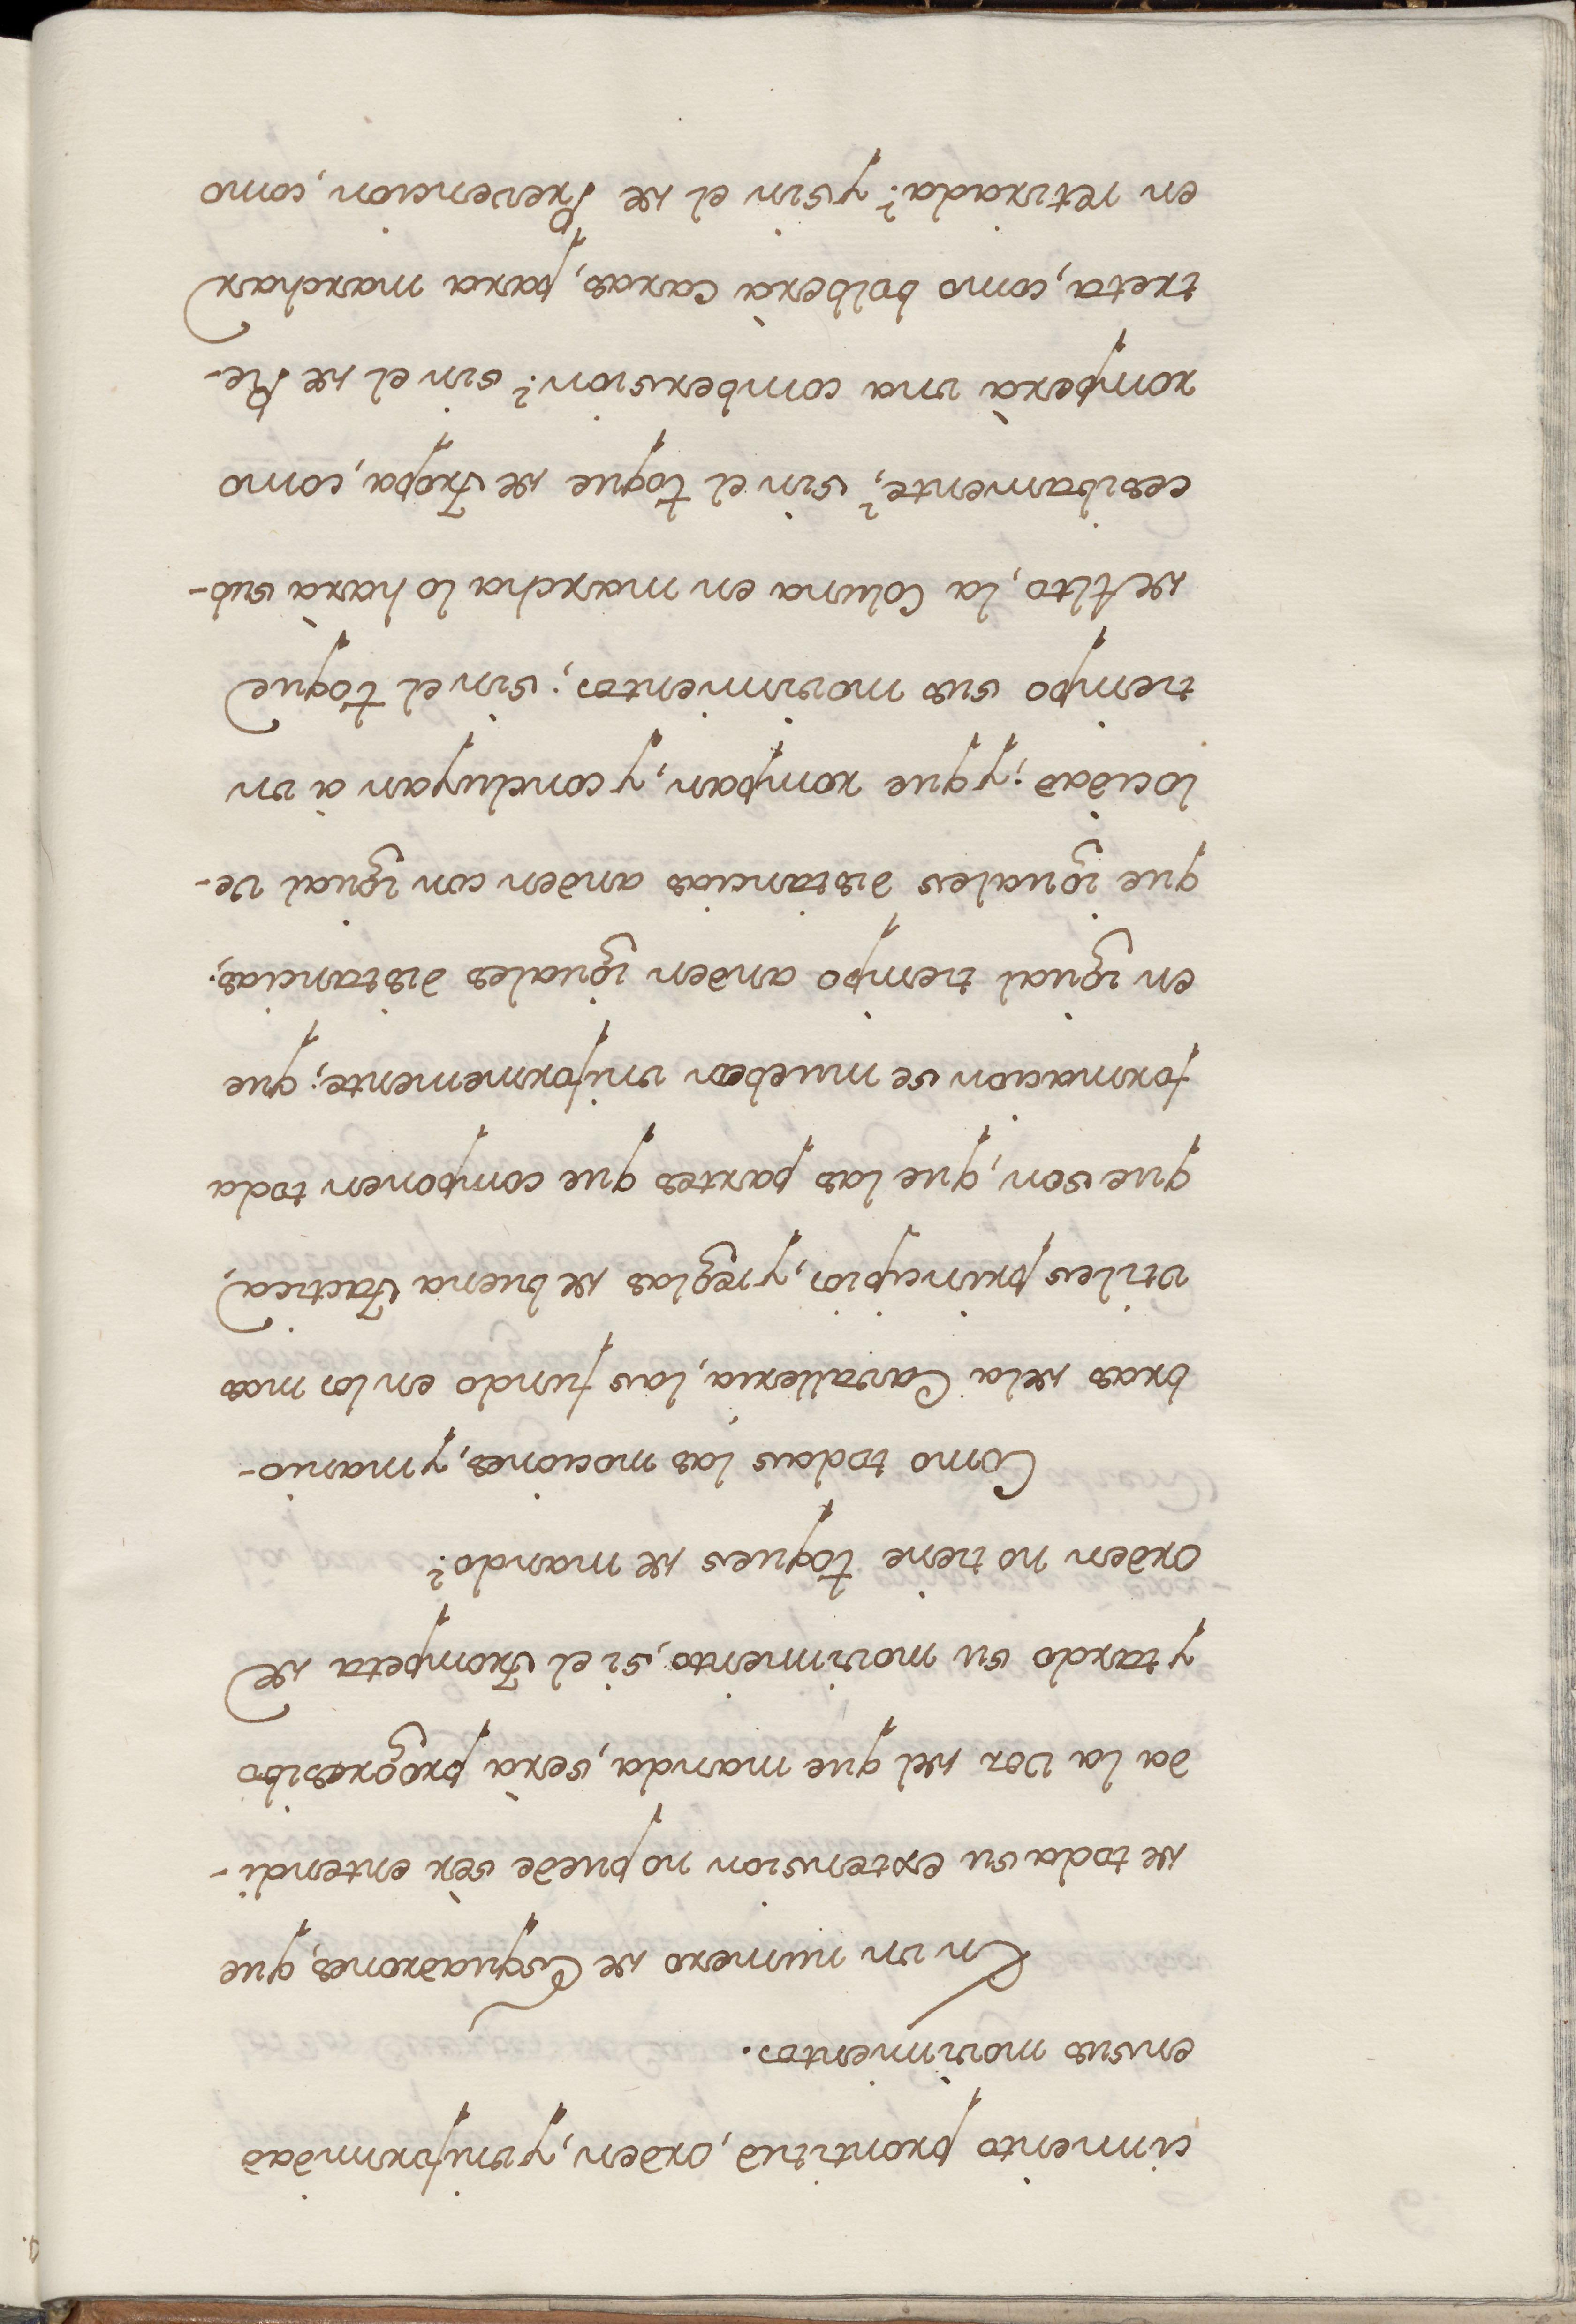 cimiento prontitud, orden, y uniformidad
ensus movimientos.
En un numero de Esquadrones, que
de toda su extension no puede sèr entendi-
da la voz del que manda, serà progresibo
y tardo su movimiento, si el Trompeta de
orden no tiene toques de mando?
Como todas las mociones, y manio-
bras dela Cavalleria, las fundo enlos mas
utiles principios, y reglas de buena Tactica,
que son, que las partes que componen toda
formacion se mueban uniformemente; que
en igual tiempo anden iguales distancias;
que iguales distancias anden con igual ve-
locidad; y que rompan, y concluyan à un
tiempo sus movimientos; sin el toque
de Alto, la Coluna en marcha lo harà sub-
cesibamente?, sin el toque de Tropa, como
romperà una combersion? sin el de Re-
treta, como bolberà caras, para marchar
en retirada? y sin el de Prevencion, como